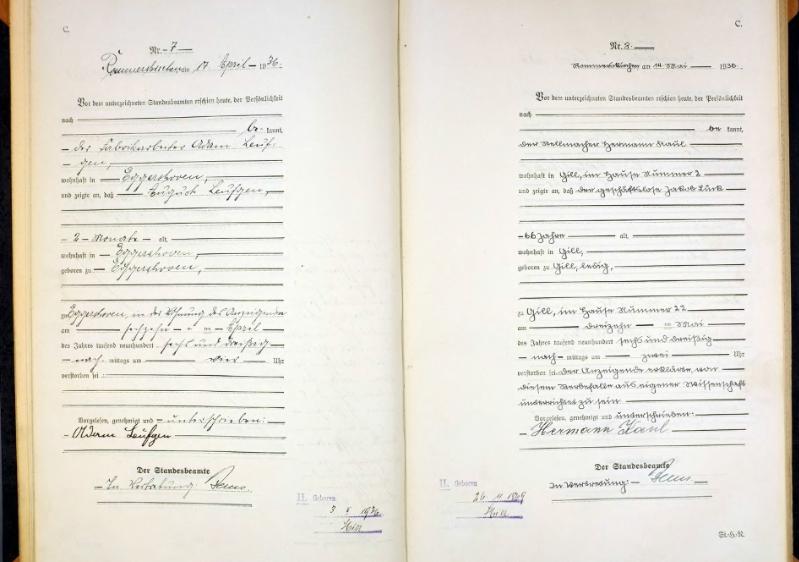 C.
Nr. 7
Rommerskirchen am 17 April 1936.
Vor dem unterzeichneten Standesbeamten erschien heute, der Persönlichkeit
nach
be kannt,
der Fabrikarbeiter Adam Leuf-
gen,
wohnhaft in Eggershoven,
und zeigte an, daß August Leufgen,
2 Monate alt,
wohnhaft in Eggershoven,
geboren zu Eggershoven,
zu Eggershoven, in der Wohnung des Anzeigenden
am sechzehn ten April
des Jahres tausend neunhundert sechs und dreißig
nach mittags um vier Uhr
verstorben sei:
Vorgelesen, genehmigt und unterschrieben:
Adam Leufgen
Der Standesbeamte
In Vertretung:
II. Geboren
1936
C.
Nr. 8.
Rommerskirchen am 14 Mai 1936.
Vor dem unterzeichneten Standesbeamten erschien heute, der Persönlichkeit
nach
be kannt,
der Stellmacher Hermann Kaul
wohnhaft in Gill, im Hause Nummer 2
und zeigte an, daß der geschäftslose Jakob Lück
66 Jahre alt,
wohnhaft in Gill,
geboren zu Gill, ledig,
zu Gill, im Hause Nummer 22
am dreizehn ten Mai
des Jahres tausend neunhundert sechs und dreißig
nach mittags um zwei Uhr
verstorben sei: der Anzeigende erklärte, von
diesem Sterbefalle aus eigener Wissenschaft
unterrichtet zu sein
Vorgelesen, genehmigt und unterschrieben:
Hermann Kaul
Der Standesbeamte
In Vertretung:
II. Geboren
26 11 1869
St-H-R